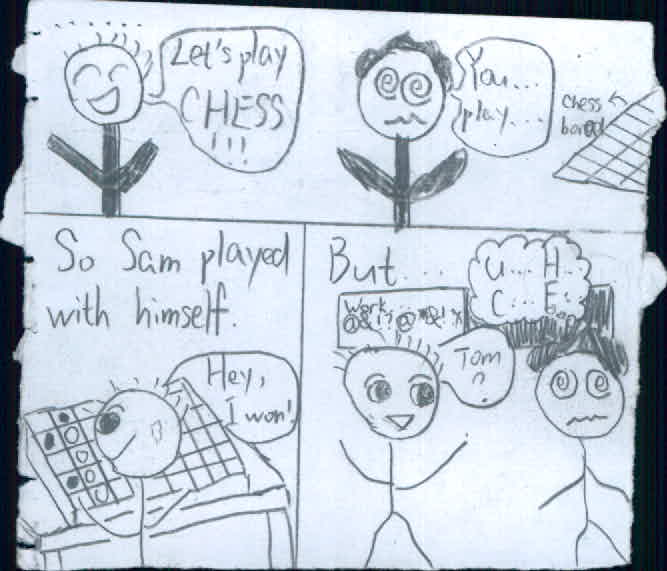 Let's play
CHESS
!!!
You...
play....
chess
bored
So Sam played
with himself.
Hey,
I won!
But....
U... H..
C... E..
Work...
@&!?@*&!*
Tom
?